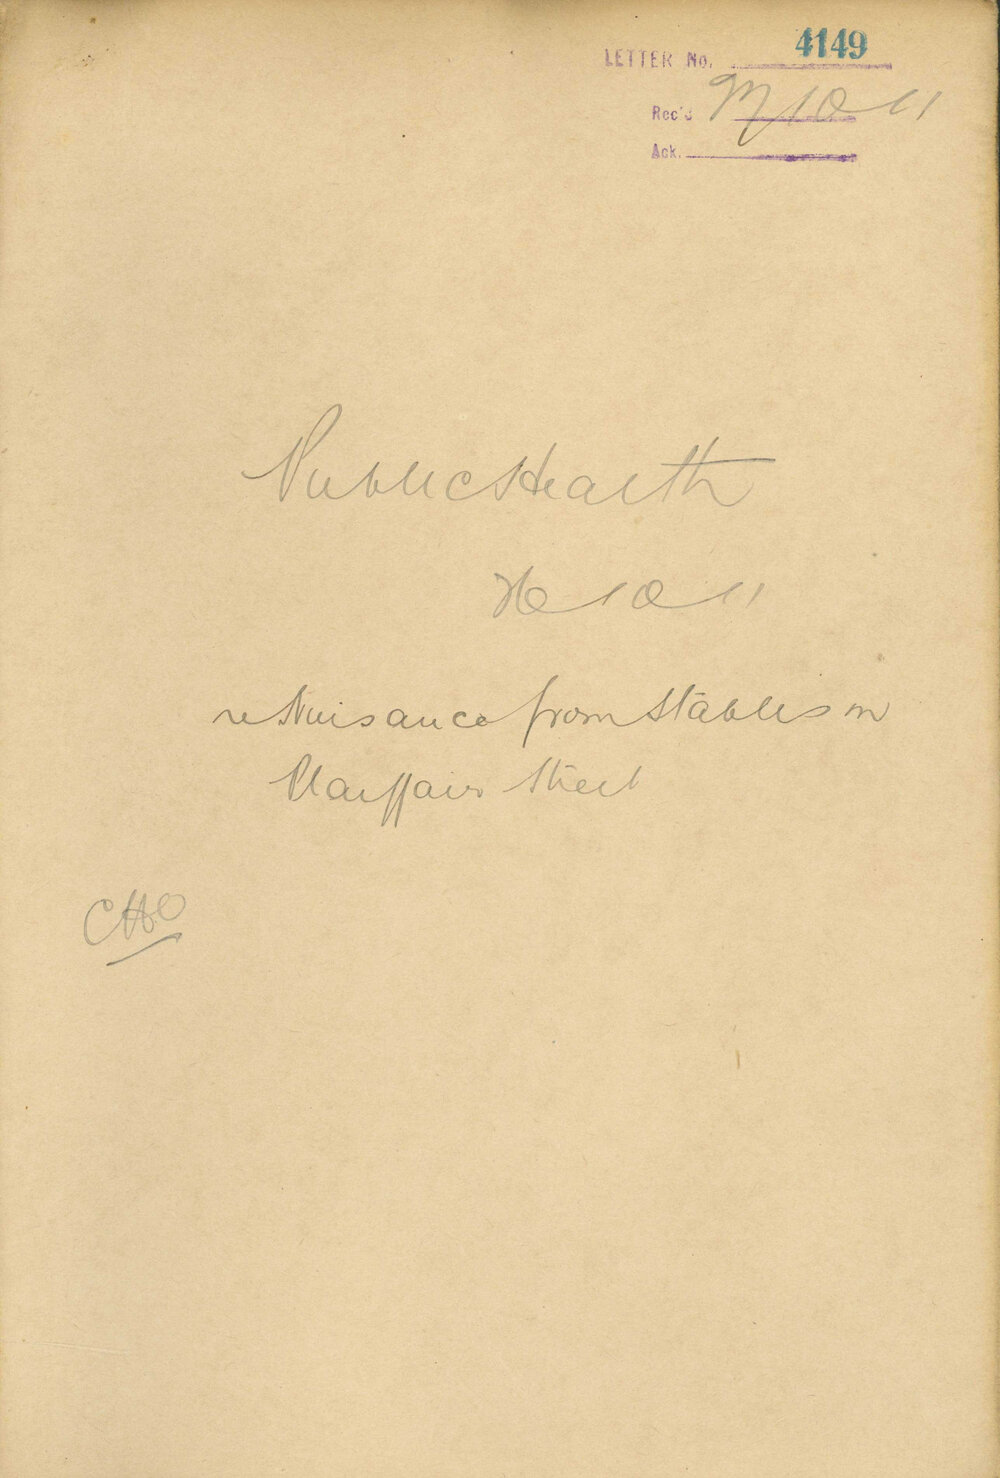 LETTER No. 4149
Rec'd 27/10/11
Ack.
Public Health
26/10/11
re Nuisance from Stables in
Playfair Street
CHO